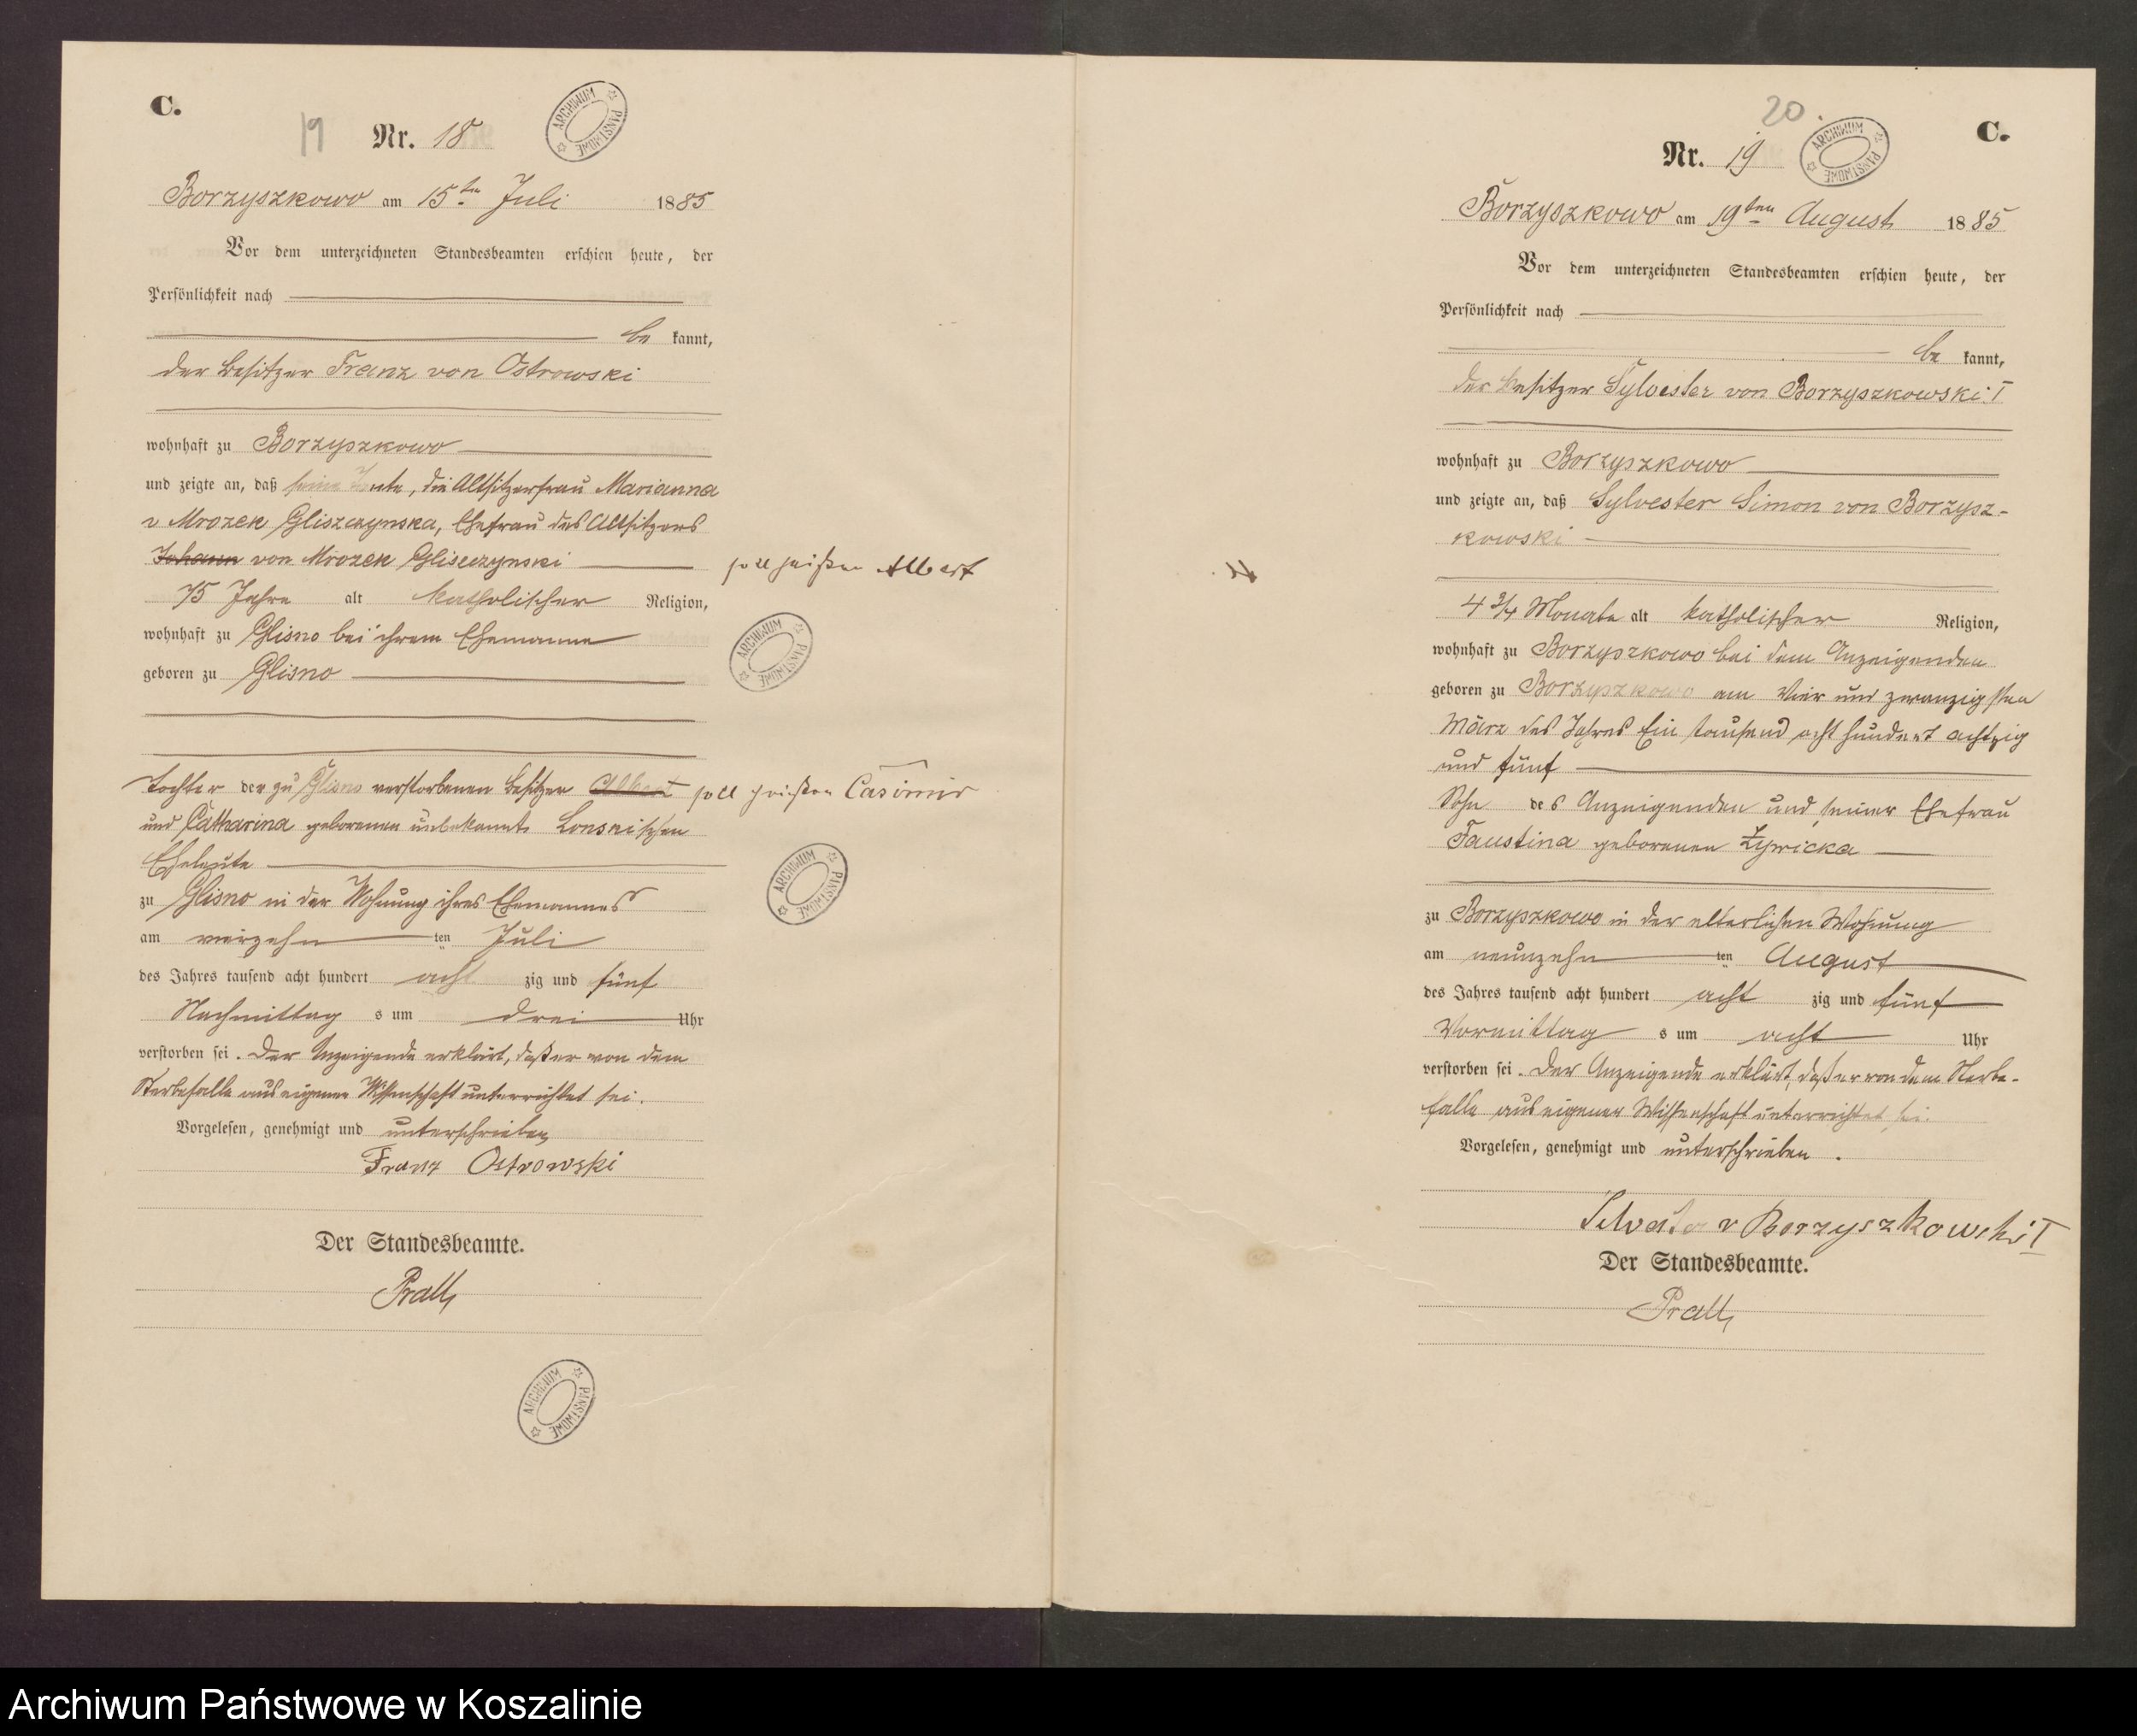 C.
19
Nr. 18
ARCHIWUM PAŃSTWOWE
Borzyszkowo am 15ten Juli 1885
Vor dem unterzeichneten Standesbeamten erschien heute, der
Persönlichkeit nach
be kannt,
der Besitzer Franz von Ostrowski
wohnhaft zu Borzyszkowo
und zeigte an, daß seine Tante, die Altsitzerfrau Marianna
v Mrozek Gliszczynska, Ehefrau des Altsitzers
Johann von Mrozek Gliszczynski soll heißen Albert
75 Jahre alt katholischer Religion,
wohnhaft zu Glisno bei ihrem Ehemanne
ARCHIWUM PAŃSTWOWE
geboren zu Glisno
Tochter der zu Glisno verstorbenen Besitzer Albert soll heißen Casimir
und Catharina geborenen unbekannt Lonskischen
Eheleute
ARCHIWUM PAŃSTWOWE
zu Glisno in der Wohnung ihres Ehemannes
am vierzehn ten Juli
des Jahres tausend acht hundert acht zig und fünf
Nachmittag s um drei Uhr
verstorben sei. Der Anzeigende erklärt, daß er von dem
Sterbefalle aus eigener Wissenschaft unterrichtet sei.
Vorgelesen, genehmigt und unterschrieben
Franz Ostrowski
Der Standesbeamte.
Prall
ARCHIWUM PAŃSTWOWE
20.
C.
Nr. 19
ARCHIWUM PAŃSTWOWE
Borzyszkowo am 19ten August 1885
Vor dem unterzeichneten Standesbeamten erschien heute, der
Persönlichkeit nach
be kannt,
der Besitzer Sylvester von Borzyszkowski I
wohnhaft zu Borzyszkowo
und zeigte an, daß Sylvester Simon von Borzysz-
kowski
4 3/4 Monate alt katholischer Religion,
wohnhaft zu Borzyszkowo bei dem Anzeigenden
geboren zu Borzyszkowo am vier und zwanzigsten
März des Jahres Ein tausend acht hundert achtzig
und fünf
Sohn des Anzeigenden und seiner Ehefrau
Faustina geborenen Zywicka
zu Borzyszkowo in der elterlichen Wohnung
am neunzehn ten August
des Jahres tausend acht hundert acht zig und fünf
Vormittag s um acht Uhr
verstorben sei. Der Anzeigende erklärt, daß er von dem Sterbe-
falle aus eigener Wissenschaft unterrichtet sei.
Vorgelesen, genehmigt und unterschrieben.
v Borzyszkowski I
Der Standesbeamte.
Prall
Archiwum Państwowe w Koszalinie